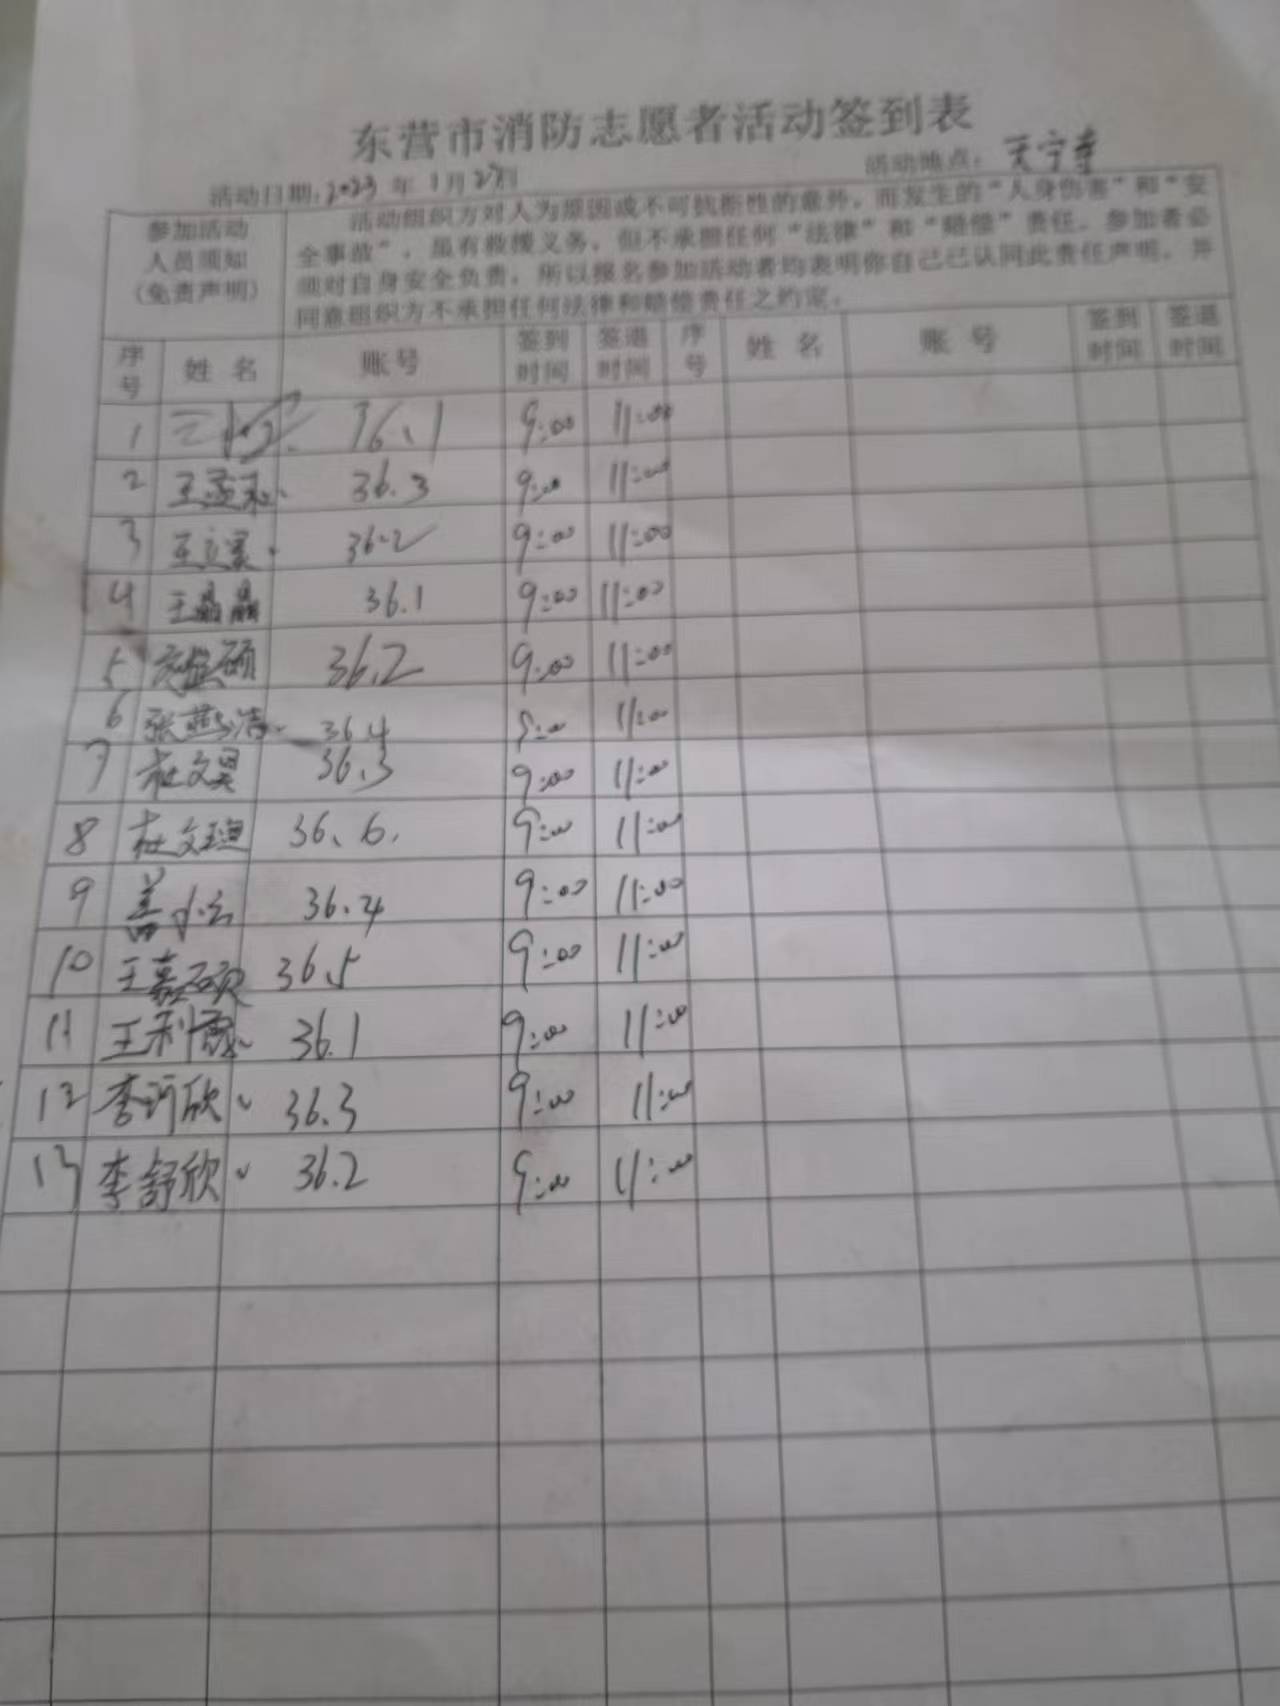 东营市消防志愿者活动签到表
活动日期：2023 年 1 月 27日 活动地点：天宁寺
参加活动人员须知（免责声明）
活动组织方对人为原因或不可抗拒性的意外，而发生的“人身伤害”和“安
全事故”，虽有救援义务，但不承担任何“法律”和“赔偿”责任。参加者必
须对自身安全负责，所以报名参加活动者均表明你自己已认同此责任声明，并
同意组织方不承担任何法律和赔偿责任之约定。
序号 姓名 账号 签到时间 签退时间 序号 姓名 账号 签到时间 签退时间
1 36.1 9:00 11:00
2 36.3 9:00 11:00
3 36.2 9:00 11:00
4 王晶晶 36.1 9:00 11:00
5 36.2 9:00 11:00
6 张燕洁 36.4 9:00 11:00
7 杜文昊 36.3 9:00 11:00
8 杜文 36.6. 9:00 11:00
9 盖小云 36.4 9:00 11:00
10 王嘉硕 36.5 9:00 11:00
11 王利霞 36.1 9:00 11:00
12 李珂欣 36.3 9:00 11:00
13 李舒欣 36.2 9:00 11:00